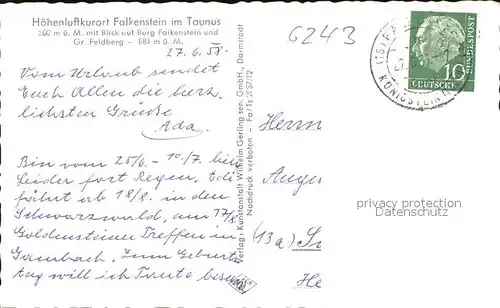 Höhenluftkurort Falkenstein im Taunus
500 m ü. M. mit Blick auf Burg Falkenstein und
Gr. Feldberg - 881 m ü. M.
27.6.58.
Vom Urlaub sendet
Euch Allen die herz
lichsten Grüße
Ada.
Bin vom 25/6 - 10./7. hier
Leider fort Regen. Edi
fährt ab 18/8. in den
Schwarzwald, am 17/8.
Goldensteiner Treffen in
Gambach. Zum Geburts
tag will ich Traute besu
Verlag: Kunstanstalt Wilhelm Gerling ses. GmbH., Darmstadt
Nachdruck verboten - Fa/Ts 237/12
6243
KÖNIGSTEIN
DEUTSCHE
BUNDESPOST
10
Herrn
(13a)
privacy protection
Datenschutz